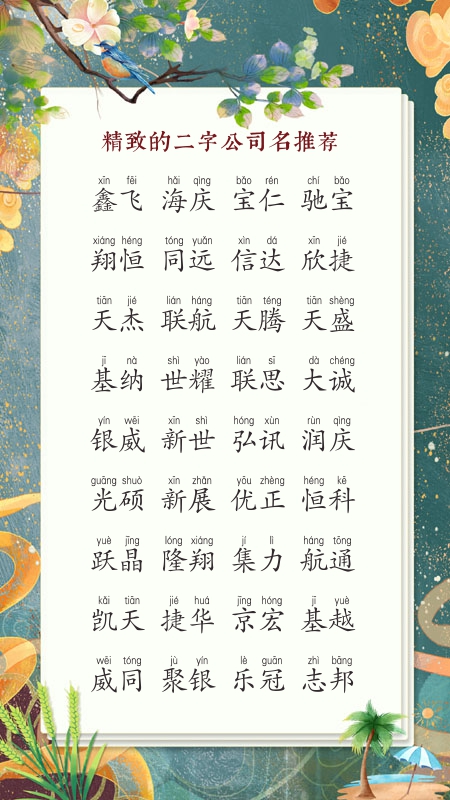 精致的二字公司名推荐
xīn fēi hǎi qìng bǎo rén chí bǎo
鑫飞 海庆 宝仁 驰宝
xiáng héng tóng yuǎn xìn dá xīn jié
翔恒 同远 信达 欣捷
tiān jié lián háng tiān téng tiān shèng
天杰 联航 天腾 天盛
jī nà shì yào lián sī dà chéng
基纳 世耀 联思 大诚
yín wēi xīn shì hóng xùn rùn qìng
银威 新世 弘讯 润庆
guāng shuò xīn zhǎn yōu zhèng héng kē
光硕 新展 优正 恒科
yuè jīng lóng xiáng jí lì háng tōng
跃晶 隆翔 集力 航通
kǎi tiān jié huá jīng hóng jī yuè
凯天 捷华 京宏 基越
wēi tóng jù yín lè guān zhì bāng
威同 聚银 乐冠 志邦